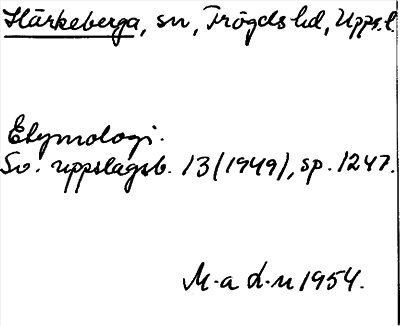 Härkeberga, sn, Trögds hd, Upps.l.
Etymologi.
Sv. uppslagsb. 13 (1949), sp. 1247.
M-a d-n 1954.